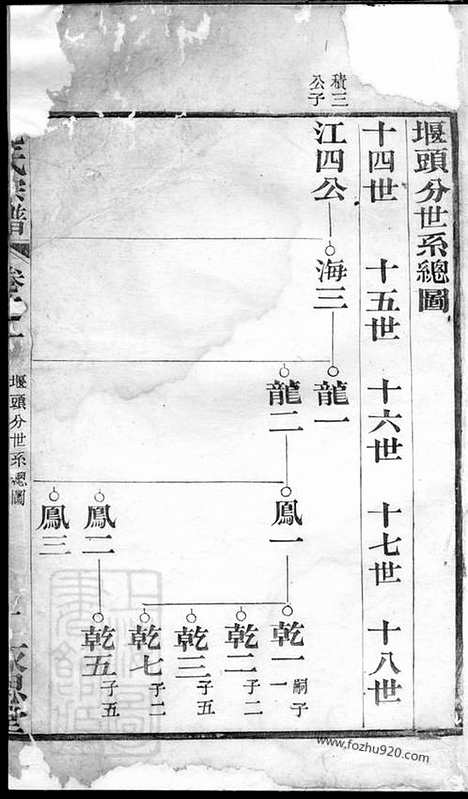 堰頭分世系總圖
十四世 十五世 十六世 十七世 十八世
積三公子
江四公 海三 龍一
龍二 鳳一 乾一 嗣子一
乾二 子二
乾三 子五
乾七 子二
鳳二 乾五 子五
鳳三
氏宗譜 卷之一 堰頭分世系總圖
www.fozhu920.com